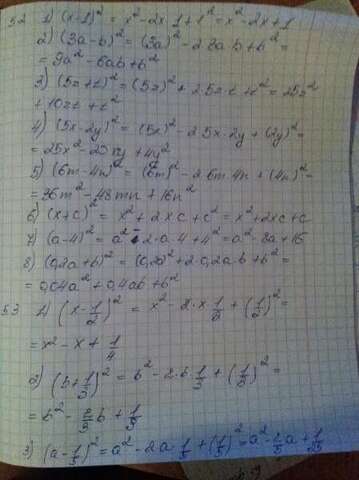 52 1) (x-1)² = x²-2x·1+1² = x²-2x+1
2) (3a-b)² = (3a)² - 2·3a·b+b² =
= 9a² - 6ab+b²
3) (5z+t)² = (5z)² + 2·5z·t+t² = 25z²
+10zt+t²
4) (5x-2y)² = (5x)² - 2·5x·2y + (2y)² =
= 25x² - 20xy + 4y²
5) (6m-4n)² = (6m)² - 2·6m·4n + (4n)² -
= 36m² - 48mn + 16n²
6) (x+c)² = x² + 2xc + c² = x² + 2xc + c
7) (a-4)² = a² - 2·a·4+4² = a² - 8a+16
8) (0,2a+b)² = (0,2a)² + 2·0,2a·b + b² =
= 0,04a² + 0,4ab + b²
53 1) (x-1/2)² = x² - 2·x·1/2 + (1/2)² =
= x² - x + 1/4
2) (b+1/3)² = b² - 2·b·1/3 + (1/3)² =
= b² - 2/3b + 1/9
3) (a-1/5)² = a² - 2a·1/5 + (1/5)² = a² - 2/5a + 1/25